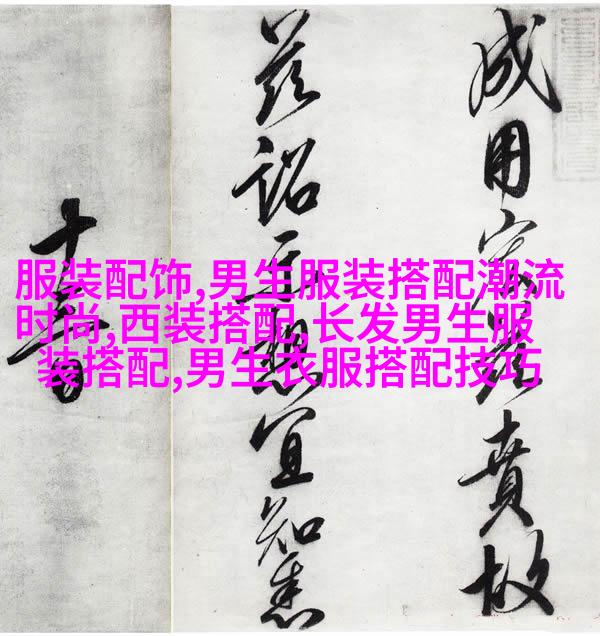 服装配饰,男生服装搭配潮流
时尚,西装搭配,长发男生服
装搭配,男生衣服搭配技巧
成用賁故
茲詔示想宜知悉
十日